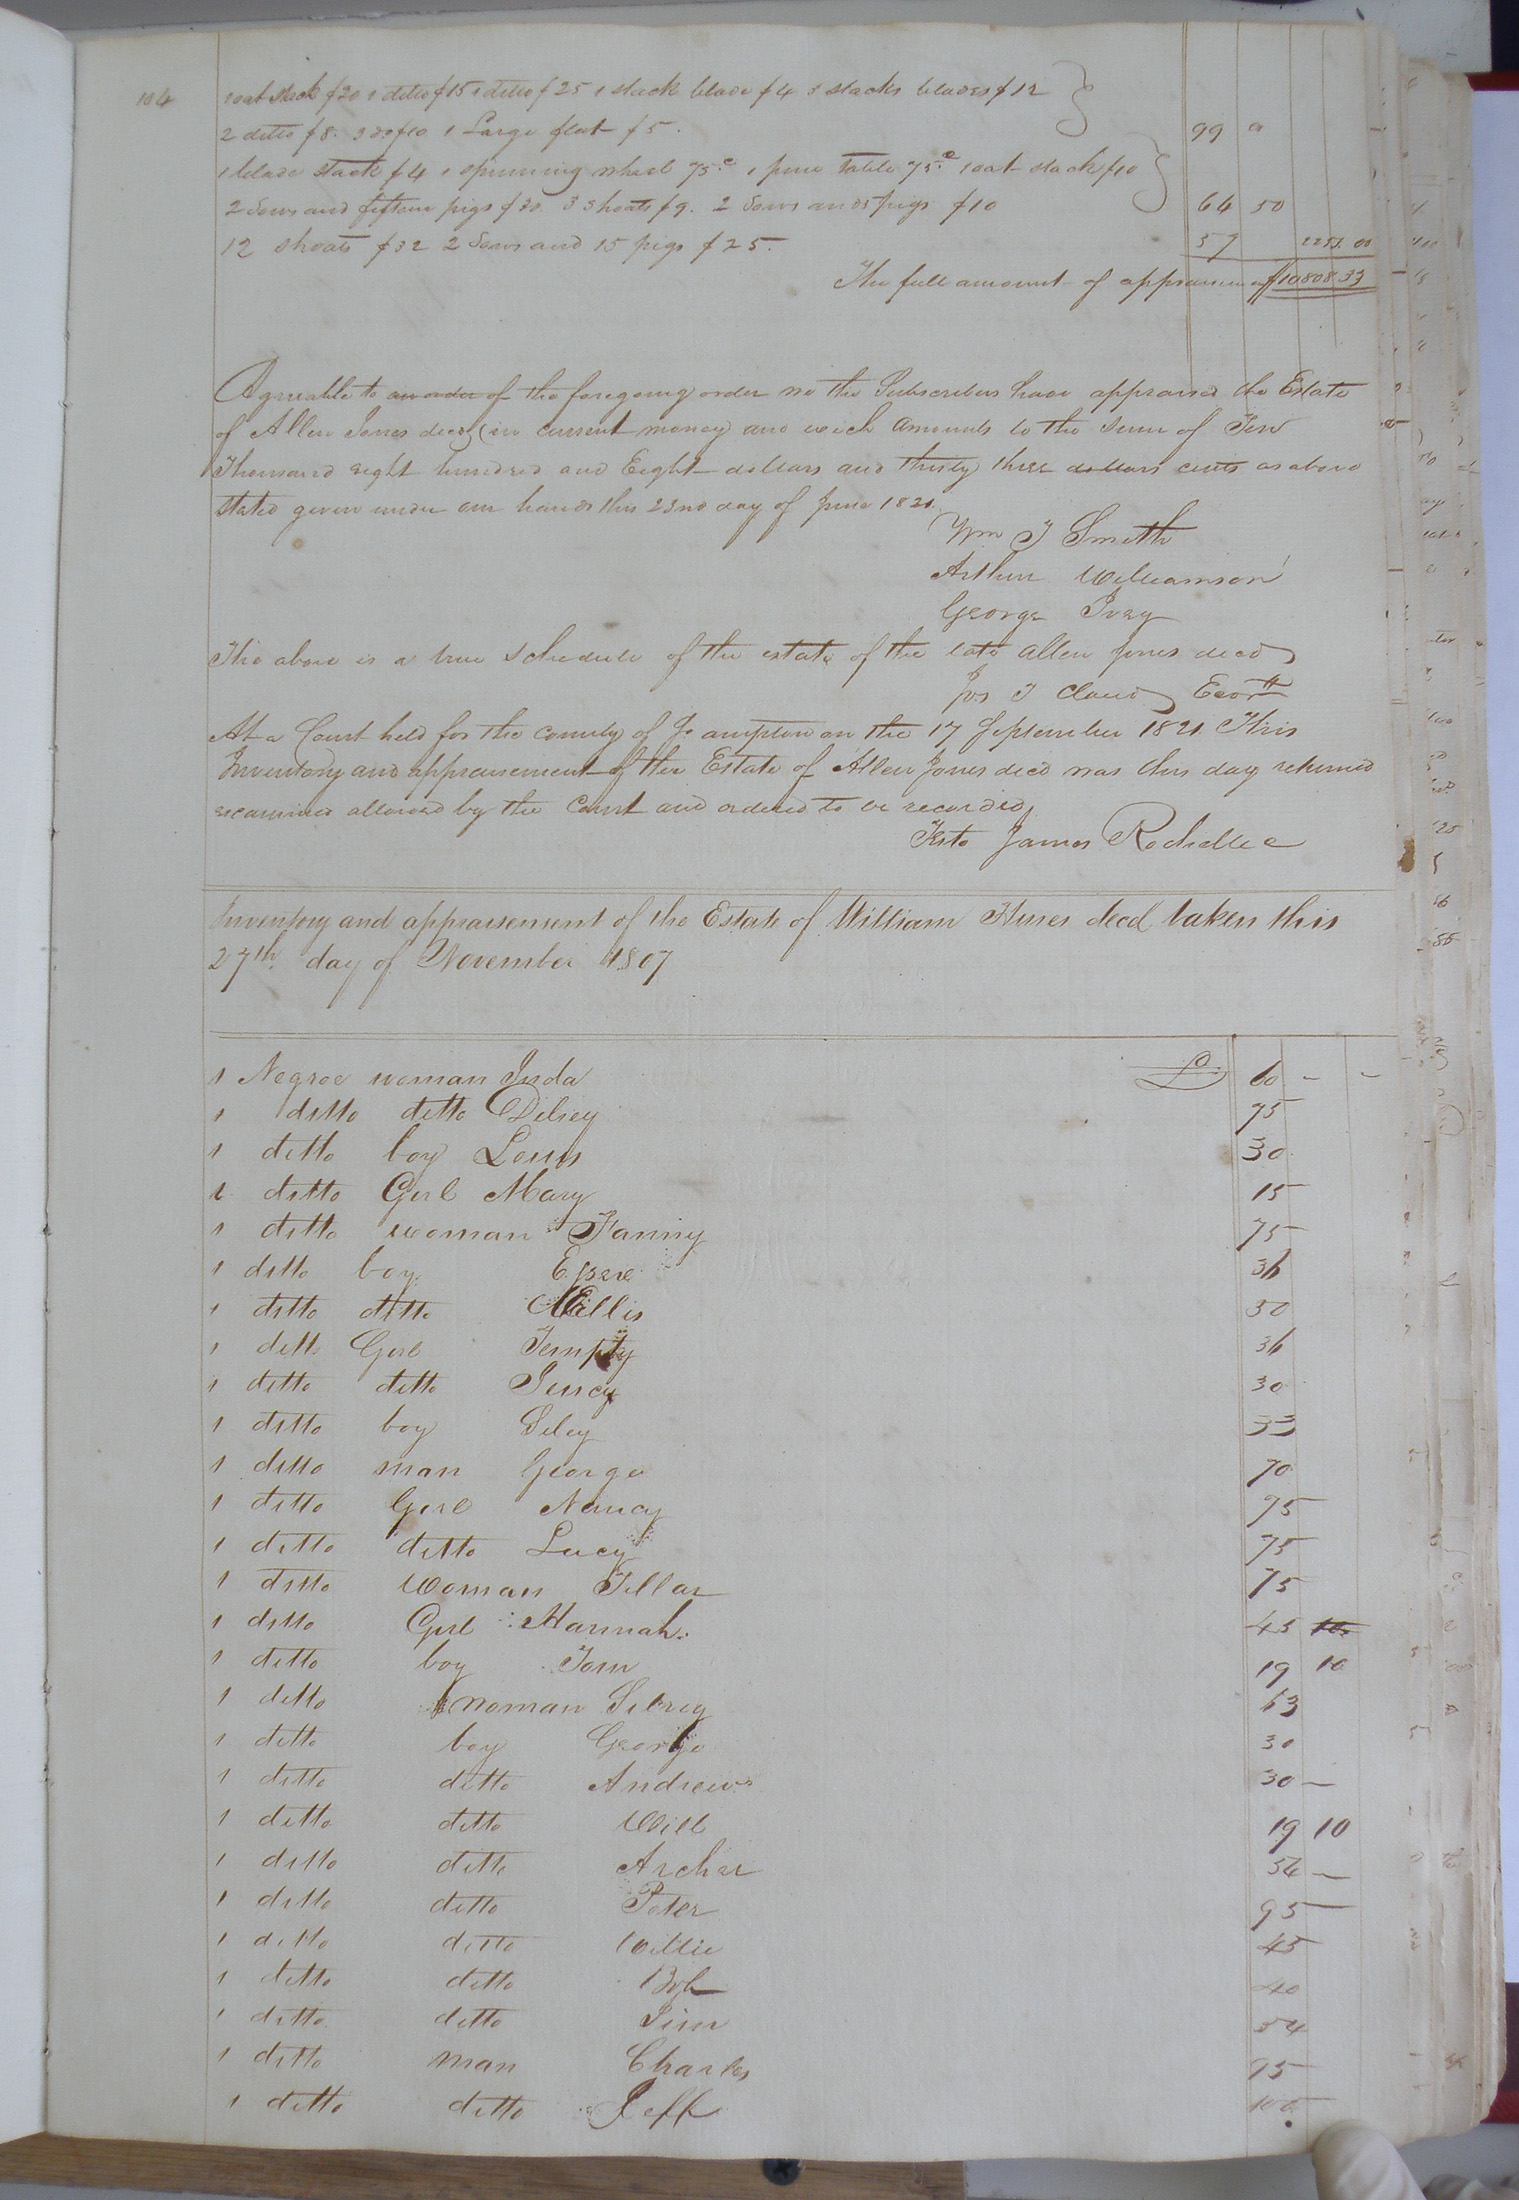 104
1 oat stack $20 1 ditto $15 1 ditto $25 1 stack blade $4 3 stacks blades $12
2 ditto $8. 3 do $10 1 Large flat $5. 99 0
1 blade stack $4 1 spinning wheel 75.c 1 pine table 75.c 1 oat stack $10
2 Sows and fifteen pigs $30. 3 shoats $9. 2 Sows and 5 pigs $10 64 50
12 shoats $32 2 Sows and 15 pigs $25. 57
The full amount of appraisment $10808.33
Agreeable to an order of the foregoing order we the Subscribers have appraised the Estate
of Allen Jones decd (in current money) and wich amounts to the sum of Ten
Thousand eight hundred and Eight dollars and thirty three dollars cents as above
stated given under our hands this 22nd day of June 1821.
Wm J Smith
Arthur Williamson
George Ivey
The above is a true schedule of the estate of the late Allen Jones decd
Jos T Claud Exor
At a Court held for the county of So ampton on the 17 September 1821 This
Inventory and appraisement of the Estate of Allen Jones decd was this day returned
examined allowed by the Court and ordered to be recorded
Teste James Rochelle
Inventory and appraisement of the Estate of William Hines decd taken this
27th day of November 1807
1 Negroe woman Juda £ 60 - -
1 ditto ditto Dilsey 75
1 ditto boy Louis 30
1 ditto Girl Mary 15
1 ditto woman Fanny 75
1 ditto boy 36
1 ditto ditto Willis 50
1 ditt Girl Tempy 36
1 ditto ditto Jincy 30
1 ditto boy 33
1 ditto man George 70
1 ditto Girl Nancy 75
1 ditto ditto Lucy 75
1 ditto Woman Tillar 75
1 ditto Girl Hannah 45 10
1 ditto boy Tom 19 10
1 ditto woman 63
1 ditto boy George 30
1 ditto ditto Andrew 30 -
1 ditto ditto Will 19 10
1 ditto ditto Archer 54 -
1 ditto ditto Peter 95
1 ditto ditto Willie 45
1 ditto ditto Bob 40
1 ditto ditto Sim 54
1 ditto man Charles 95
1 ditto ditto Jeff 100